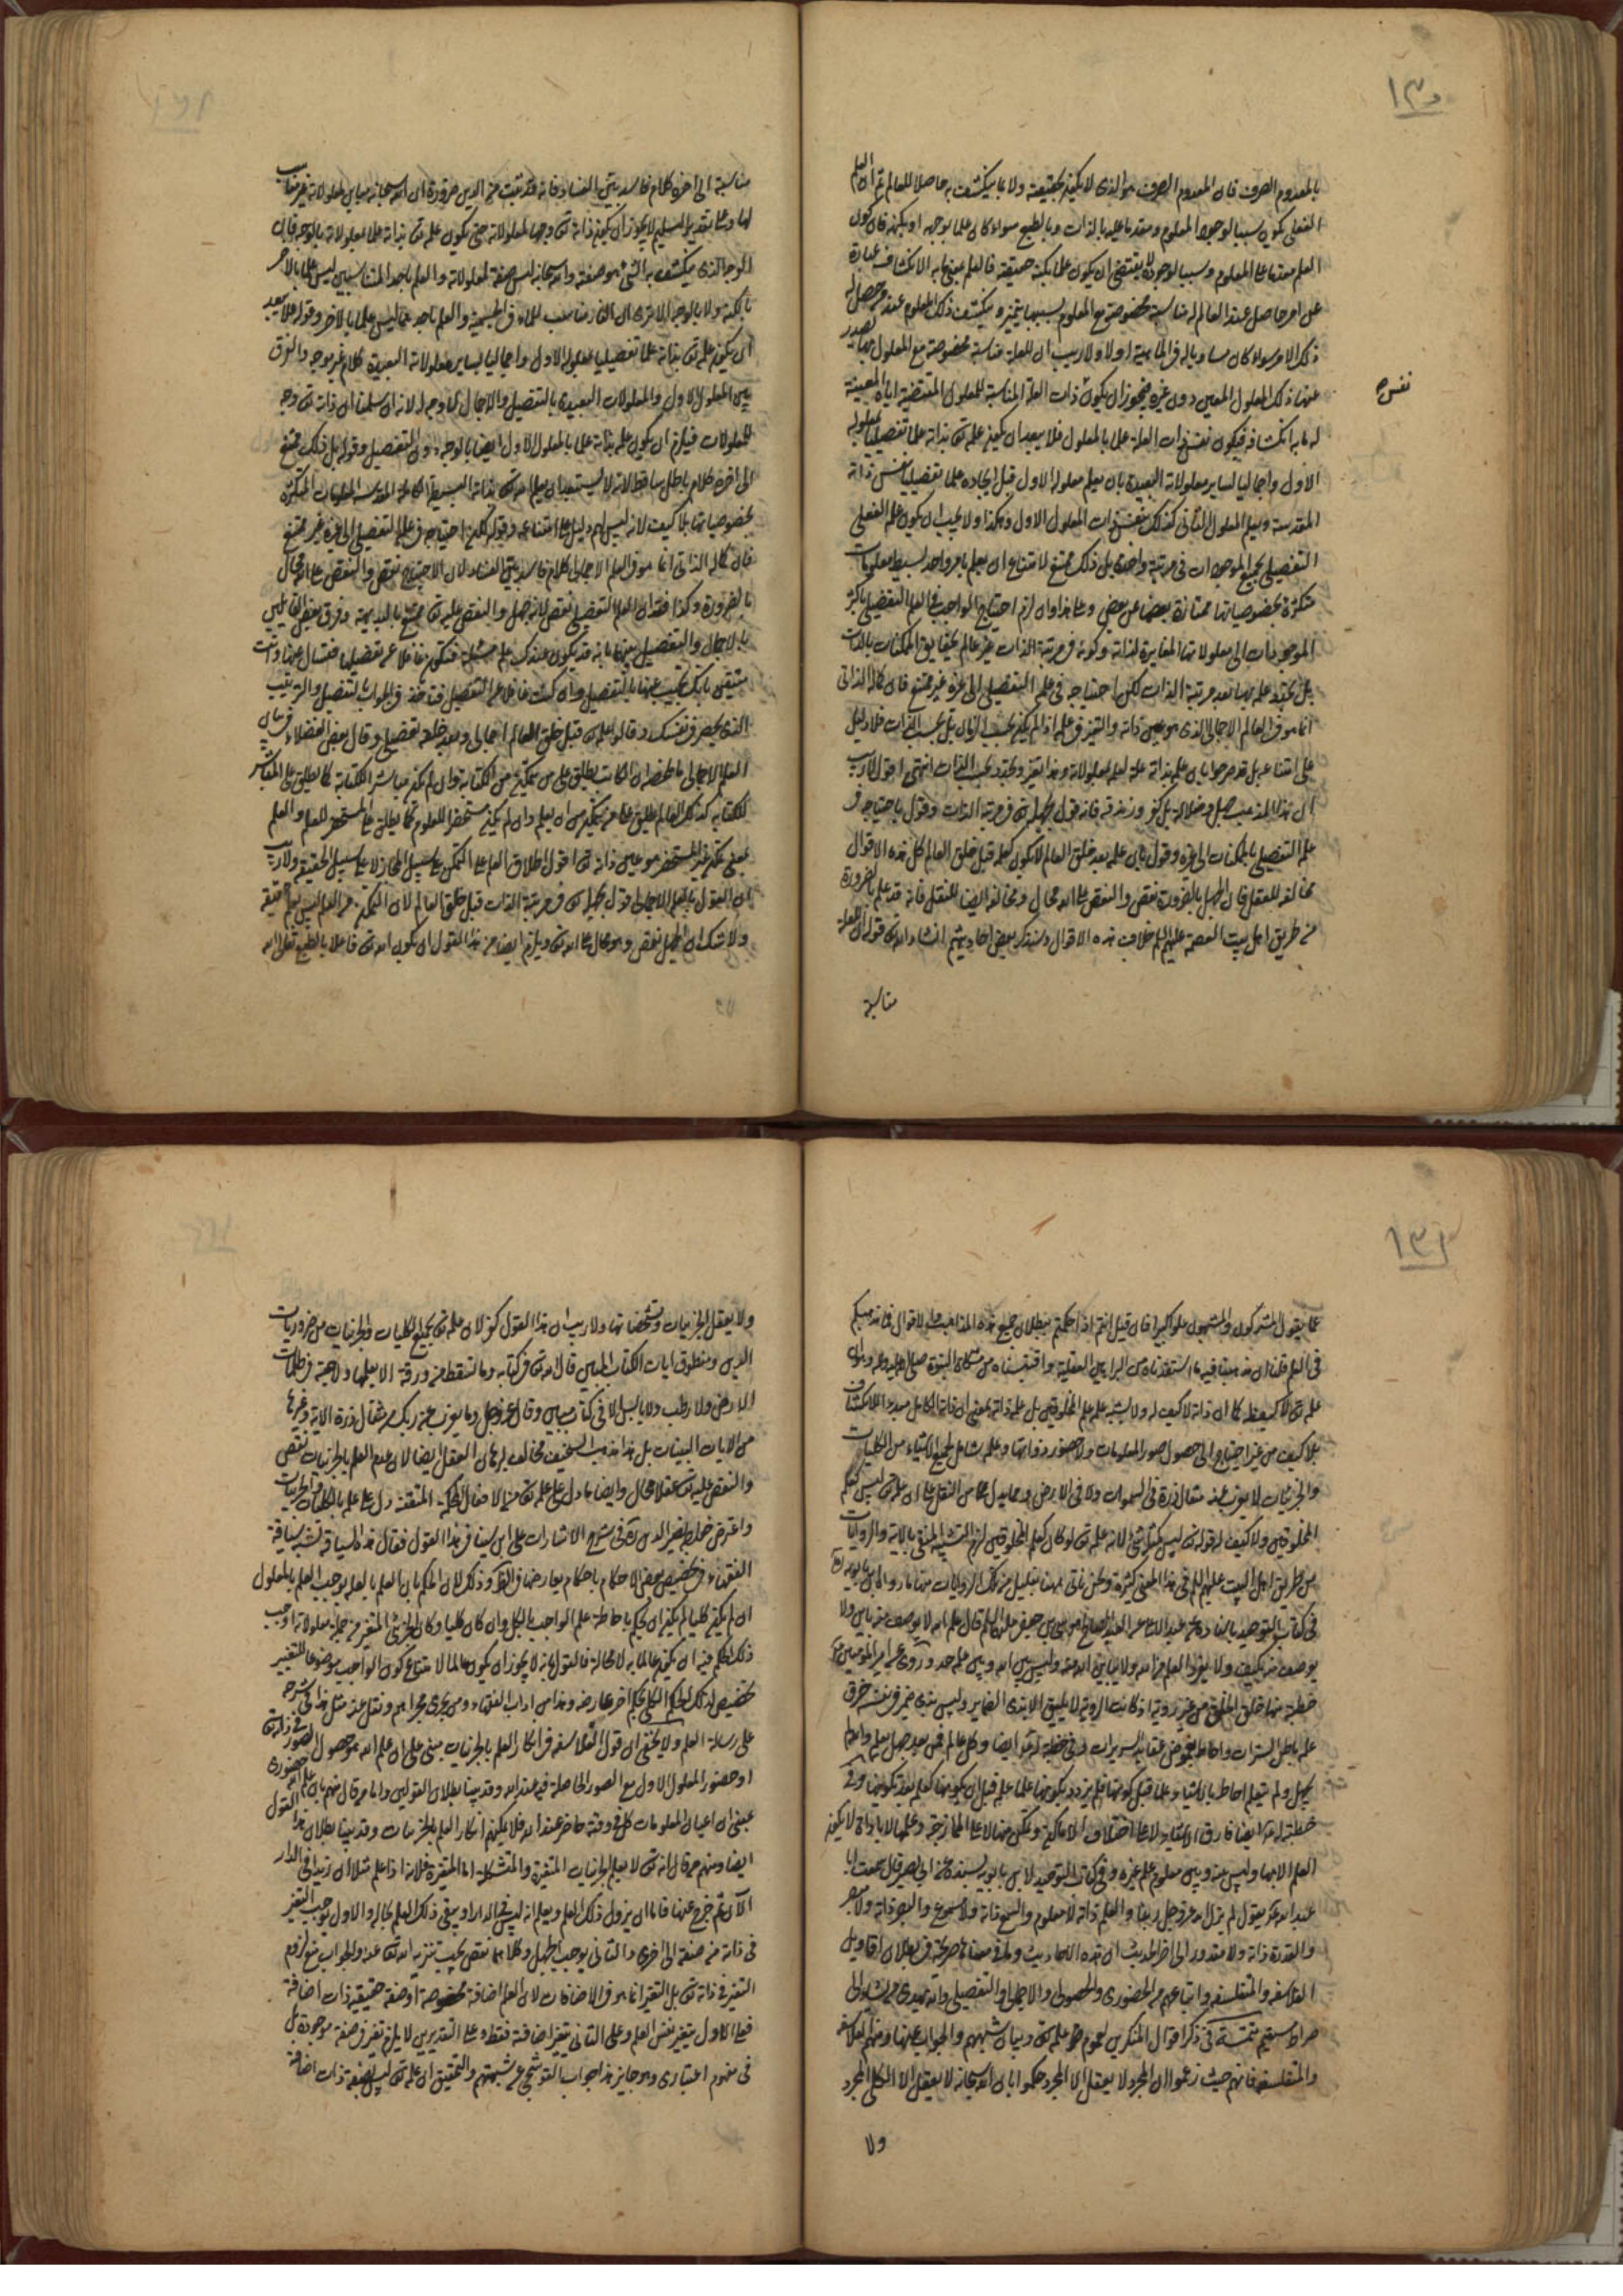 ١٣٥
بالمعدوم الصرف فان المعدوم الصرف هو الذى لا يكون بحقيقته ولا بما ينكشف به حاصلا للعالم ثم ان العلم
الفعلى يكون سببا لوجود المعلوم ومقدما عليه بالذات وبالطبع سواء كان علما بوجهه او بكنهه فان كون
العلم مقدما على المعلوم وسببا لوجوده لا يقتضى ان يكون علما بكنه حقيقته فالعلم بمعنى ما به الانكشاف عبارة
عن امر حاصل عند العالم له مناسبة مخصوصة مع المعلوم بسببها يتميز وينكشف ذلك المعلوم عند من حصل له
ذلك الامر سواء كان مساويا له فى الماهية او لا ولا ريب ان للعلة مناسبة مخصوصة مع المعلول بها يصدر
عنها ذلك المعلول المعين دون غيره فيجوز ان يكون ذات العلة المناسبة للمعلول المقتضية اياه المعينة
نفس
له ما به انكشافه فيكون نفس ذات العلة علما بالمعلول فلا يبعد ان يكون علمه تعالى بذاته علما تفصيليا بمعلوله
الاول واجماليا لساير معلولاته البعيدة بان يعلم معلوله الاول قبل ايجاده علما تفصيليا بنفس ذاته
المقدسة ويعلم المعلول الثانى كذلك بنفس ذات المعلول الاول وهكذا ولا يجب ان يكون علمه الفعلى
التفصيلى بجميع الموجودات فى مرتبة واحدة بل ذلك ممتنع لامتناع ان يعلم بامر واحد بسيط معلومات
متكثرة بخصوصياتها ممتازة بعضها عن بعض وعلى هذا وان لزم احتياج الواجب فى العلم التفصيلى باكثر
الموجودات الى معلولاتها المغايرة لذاته وكونه فى مرتبة الذات غير عالم بحقايق الممكنات بالذات
بل يتجدد علمه بها بعد مرتبة الذات لكن احتياجه فى علمه التفصيلى الى غيره غير ممتنع فان كماله الذاتى
انما هو فى العالم الاجمالى الذى هو عين ذاته والتغير فى علمه اذا لم يكن بحسب الزمان بل بحسب الذات فلا دليل
على امتناعه بل قد صرحوا بان علمه بذاته علة لعلمه بمعلولاته وهذا تغير وتجدد بحسب الذات انتهى اقول لا ريب
ان هذا المذهب جهل وضلالة بل كفر وزندقة فانه قول بجهله تعالى فى مرتبة الذات وقول باحتياجه فى
علمه التفصيلى بالممكنات الى غيره وقول بان علمه بعد خلق العالم لا يكون كعلمه قبل خلق العالم كل هذه الاقوال
مخالفة للعقل فان الجهل بالضرورة نقص والنقص على الله محال ومخالفة ايضا للنقل فانه قد علم بالضرورة
من طريق اهل بيت العصمة عليهم السلام خلاف هذه الاقوال وسنذكر بعض احاديثهم انشاء الله تعالى قوله ان للعلة
مناسبة
مناسبة الى اخره كلام فاسد بين الفساد فانه قد ثبت من الدين ضرورة ان الله سبحانه مباين لمعلولاته غير مناسب
لها وعلى تقدير التسليم لا يجوز ان يكون ذاته تعالى وجها لمعلولاته حتى يكون علمه تعالى بذاته علما بمعلولاته بالوجه فان
الوجه الذى ينكشف به الشئ هو صفته والله سبحانه ليس صفة لمعلولاته والعلم باحد المتناسبين ليس علما بالاخر
بالكنه ولا بالوجه الا ترى ان النار مناسب للماء فى الجسمية والعلم باحدهما ليس علما بالاخر وقوله فلا يبعد
ان يكون علمه تعالى بذاته علما تفصيليا بمعلوله الاول واجماليا لساير معلولاته البعيدة كلام غير موجه والفرق
بين المعلول الاول والمعلولات البعيدة بالتفصيل والاجمال لا وجه له لانه ان سلمنا ان ذاته تعالى وجه
للمعلولات فيلزم ان يكون علمه بذاته علما بالمعلول الاول ايضا بالوجه دون التفصيل وقوله بل ذلك ممتنع
الى اخره كلام باطل ساقط لانه لا يستبعد ان يعلم الله تعالى بذاته البسيطة الكاملة المقدسة المعلومات المتكثرة
بخصوصياتها بلا كيف لانه ليس لهم دليل على امتناعه وقوله لكن احتياجه فى علمه التفصيلى الى غيره غير ممتنع
فان كماله الذاتى انما هو فى العلم الاجمالى كلام فاسد بين الفساد لان الاحتياج نقص والنقص على الله محال
بالضرورة وكذا فقدان العلم التفصيلى نقص لانه جهل والنقص عليه تعالى ممتنع بالبديهة وفرق بعض القائلين
بالاجمال والتفصيل بينهما بانه قد يكون عندك علم مسئلة فتكون غافلا عن تفصيلها فتسال عنها وانت
متيقن بانك تجيب عنها بالتفصيل وان كنت غافلا عن التفصيل فتاخذ فى الجواب بالتفصيل والترتيب
الذى يحضر فى نفسك وقالوا علمه تعالى قبل خلق العالم اجمالى وبعد خلقه تفصيلى وقال بعض الفضلاء فى بيان
العلم الاجمالى ما ملخصه ان الكاتب يطلق على من يتمكن من الكتابة وان لم يكن مباشر الكتابة كما يطلق على المباشر
للكتابة كذلك العالم يطلق على من يتمكن من ان يعلم وان لم يكن مستحضرا للمعلوم كما يطلق على المستحضر للمعلوم والعلم
بمعنى تمكن غير المستحضر هو عين ذاته تعالى اقول اطلاق العلم على التمكن على سبيل المجاز لا على سبيل الحقيقة ولا ريب
ان القول بالعلم الاجمالى قول بجهله تعالى فى مرتبة الذات قبل خلق العالم لان التمكن من العلم ليس بعلم حقيقة
ولا شك ان الجهل نقص وهو محال على الله تعالى ويلزم ايضا من هذا القول ان يكون الله تعالى فاعلا بالطبع تعالى الله
١٣٦
عما يقول المشركون والمشبهون علوا كبيرا فان قيل انتم اذا حكمتم ببطلان جميع هذه المذاهب والاقوال فما مذهبكم
فى العلم قلنا ان مذهبنا فيه ما استفدناه من البراهين العقلية واقتبسناه من مشكاة النبوة صلى الله عليه وآله وهو ان
علمه تعالى لا كيف له كما ان ذاته لا كيف له ولا يشبه علمه علم المخلوقين بل علمه ذاته بمعنى ان ذاته الكامل مبدء الانكشاف
بلا كيف من غير احتياج الى حصول صور المعلومات ولا حضور ذواتها وعلمه شامل لجميع الاشياء من الكليات
والجزئيات لا يعزب عنه مثقال ذرة فى السموات ولا فى الارض ومما يدل عليه من النقل على ان علمه تعالى ليس كعلم
المخلوقين ولا كيف له قوله تعالى ليس كمثله شئ لان علمه تعالى لو كان كعلم المخلوقين لزم التشبيه المنفى بالاية والروايات
من طريق اهل البيت عليهم السلام فى هذا المعنى كثيرة ونحن نأتى ههنا بقليل من تلك الروايات منها ما رواه ابن بابويه
فى كتاب التوحيد باسناده عن عبد الاعلى عن العبد الصالح موسى بن جعفر عليه السلام قال علم الله لا يوصف منه باين ولا
يوصف منه بكيف ولا يفرد العلم من الله ولا يباين الله منه وليس بين الله وبين علمه حد وروى عن امير المؤمنين
خطبة منها خلق الخلق من غير روية اذ كانت الروية لا تليق الا بذوى الضماير وليس بذى ضمير فى نفسه خرق
علمه باطن السترات واحاط بغموض عقايد السريرات وفى خطبة له ايضا وكل عالم فمن بعد جهل يعلم والله لم
يجهل ولم يتعلم احاط بالاشياء علما قبل كونها فلم يزدد بكونها علما علمه قبل ان يكونها كعلمه بعد تكوينها وفى
خطبة له ايضا فارق الاشياء لا على اختلاف الاماكن وتمكن منها لا على الممازجة وعلمها لا باداة لا يكون
العلم الا بها وليس بينه وبين معلومه علم غيره وفى كتاب التوحيد لابن بابويه بسنده عن ابى بصير قال سمعت ابا
عبد الله يقول لم يزل الله عز وجل ربنا والعلم ذاته ولا معلوم والسمع ذاته ولا مسموع والبصر ذاته ولا مبصر
والقدرة ذاته ولا مقدور الى اخر الحديث ان هذه الاحاديث وما فى معناها صريحة فى بطلان اقاويل
الفلاسفة والمتفلسفة واتباعهم من الحضورى والحصولى والاجمالى والتفصيلى والله يهدى من يشاء الى
صراط مستقيم تتمة فى ذكر اقوال المنكرين لعموم علمه تعالى وبيان شبههم والجواب عنها ومنهم الفلاسفة
والمتفلسفة فانهم حيث زعموا ان المجرد لا يعقل الا المجرد حكموا بان الله سبحانه لا يعقل الا الكلى المجرد
ولا
ولا يعقل الجزئيات وتشخصاتها ولا ريب ان هذا القول كفر لان علمه تعالى بجميع الكليات والجزئيات من ضروريات
الدين ومنطوق ايات الكتاب المبين قال الله تعالى فى كتابه وما تسقط من ورقة الا يعلمها ولا حبة فى ظلمات
الارض ولا رطب ولا يابس الا فى كتاب مبين وقال عز وجل وما يعزب عن ربك من مثقال ذرة الاية وغيرها
من الايات البينات بل هذا المذهب السخيف مخالف لبرهان العقل ايضا لان عدم العلم بالجزئيات نقص
والنقص عليه تعالى عقلا محال وايضا ما دل على علمه تعالى من الافعال المحكمة المتقنة دل على علمه بالكليات والجزئيات
واعترض خواجه نصير الدين فى شرح الاشارات على ابن سينا فى هذا القول فقال هذه السياقة تشبه سياقة
الفقهاء فى تخصيص بعض الاحكام باحكام يعارضها فى الظاهر وذلك لان الحكم بان العلم بالعلة يوجب العلم بالمعلول
ان لم يكن كليا لم يكن ان يحكم باحاطة علم الواجب بالكل وان كان كليا وكان الجزئى المتغير من جملة معلولاته اوجب
ذلك الحكم فيه ان يكون عالما به لا محالة فالقول بانه لا يجوز ان يكون عالما لامتناع كون الواجب موضوعا للتغير
تخصيص لذلك الحكم الكلى بحكم اخر عارضه وهذا من اداب الفقهاء ومن يجرى مجراهم ونقل عنه مثل هذا فى شرحه
على رسالة العلم ولا يخفى ان قول الفلاسفة فى انكار العلم بالجزئيات مبنى على ان علم الله هو حصول الصور فى ذاته تعالى
او حضور المعلول الاول مع الصور الحاصلة فيه عند الله وقد بينا بطلان القولين واما من قال منهم بان علم الله حضورى
بمعنى ان اعيان المعلومات كل فى وقته حاضر عند الله فلا يمكنهم انكار العلم بالجزئيات وقد بينا بطلان هذا القول
ايضا ومنهم من قال انه تعالى لا يعلم الجزئيات المتغيرة والمتشكلة اما المتغيرة فلانه اذا علم مثلا ان زيدا فى الدار
الآن ثم خرج عنها فاما ان يزول ذلك العلم ويعلم انه ليس فى الدار او يبقى ذلك العلم بحاله والاول يوجب التغير
فى ذاته من صفة الى اخرى والثانى يوجب الجهل وكلاهما نقص يجب تنزيه الله تعالى عنه والجواب منع لزوم
التغير فى ذاته تعالى بل التغير انما هو فى الاضافات لان العلم اضافة مخصوصة او صفة حقيقية ذات اضافة
فعلى الاول يتغير نفس العلم وعلى الثانى يتغير اضافته فقط وعلى التقديرين لا يلزم تغير فى صفة موجودة بل
فى مفهوم اعتبارى وهو جايز هذا جواب القوشجى عن شبهتهم والتحقيق ان علمه تعالى ليس بصفة ذات اضافة